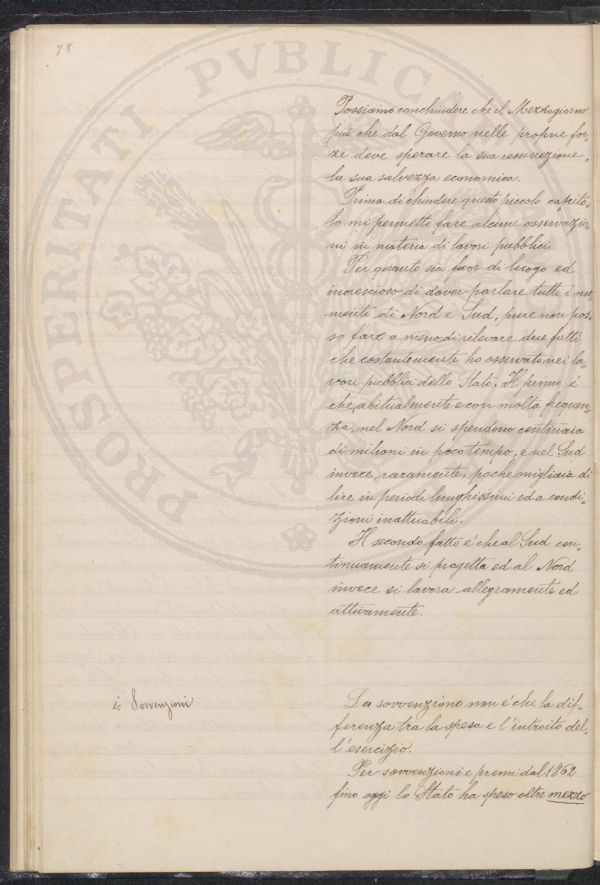 78
PROSPERITATI PVBLIC
Possiamo conchiudere che il Mezzogiorno
più che dal Governo nelle proprie for-
ze deve sperare la sua resurrezione,
la sua salvezza economica.
Prima di chiudere questo piccolo capito-
lo mi permetto fare alcune osservazio-
ni in materia di lavori pubblici.
Per quanto sia fuor di luogo ed
increscioso di dover parlare tutti i mo-
menti di Nord e Sud, pure non pos-
so fare a meno di rilevare due fatti
che costantemente ho osservato nei la-
vori pubblici dello Stato. Il primo è
che, abitualmente e con molta frequen-
za, nel Nord si spendono centinaia
di milioni in poco tempo, e nel Sud
invece, raramente, poche migliaia di
lire in periodi lunghissimi ed a condi-
zioni inattuabili.
Il secondo fatto è che al Sud con-
tinuamente si progetta ed al Nord
invece si lavora allegramente ed
attivamente.
i) Sovvenzioni
La sovvenzione non è che la dif-
ferenza tra la spesa e l'introito del-
l'esercizio.
Per sovvenzioni e premi dal 1862
fino oggi lo Stato ha speso oltre mezzo